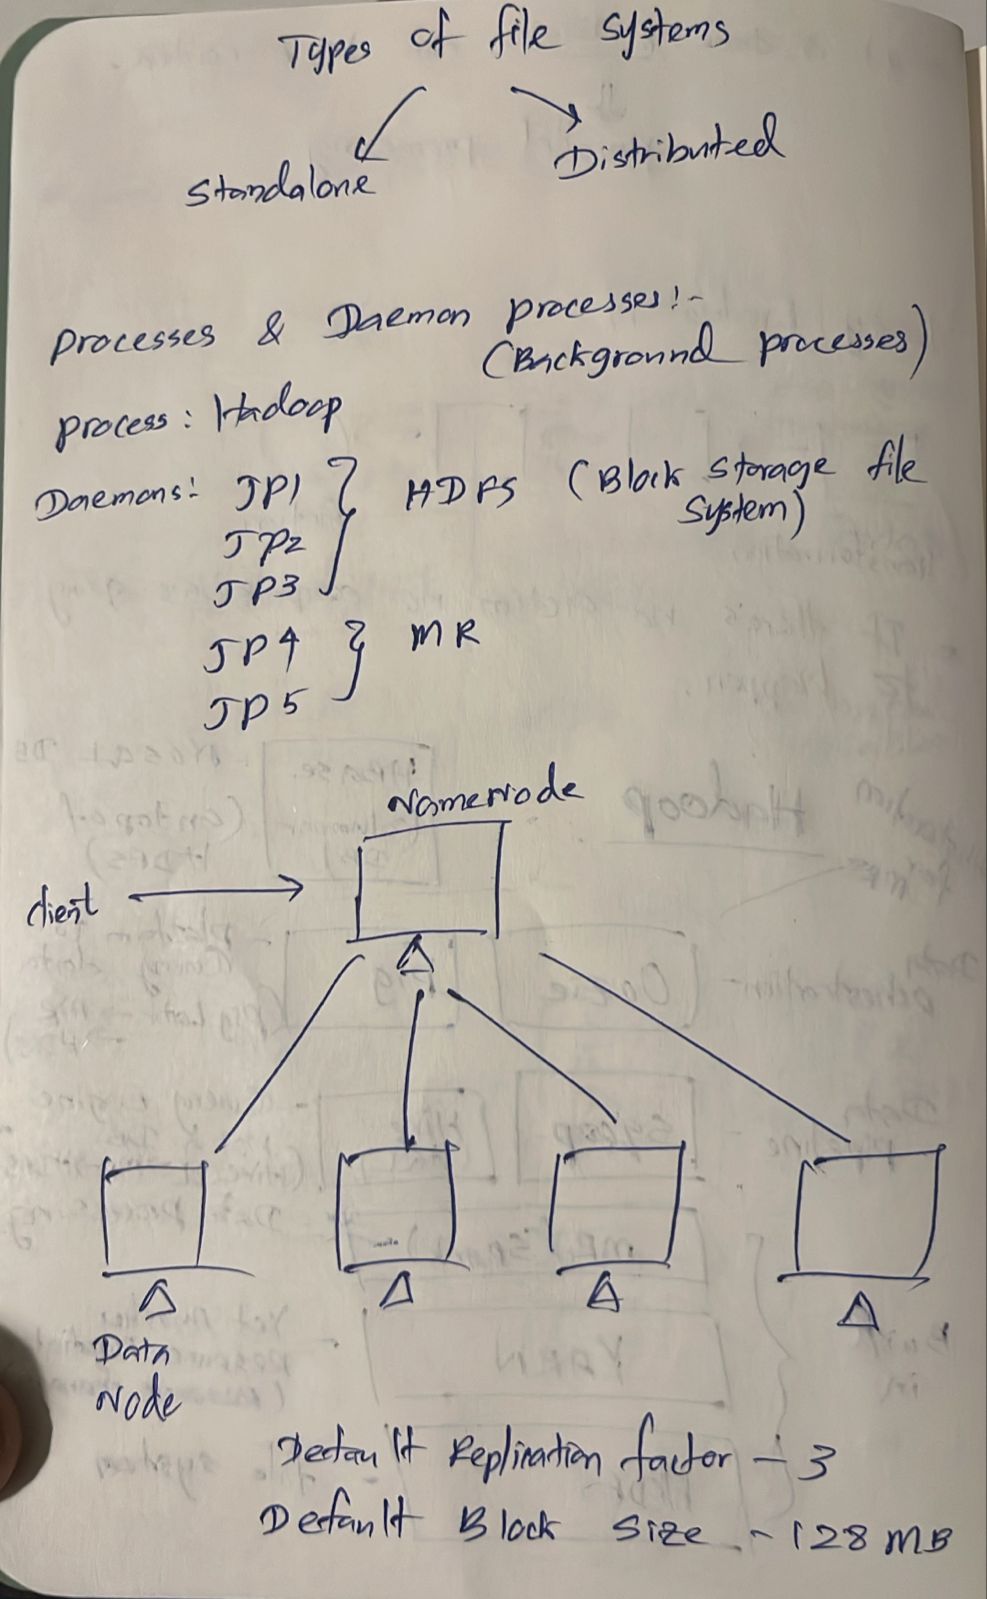 Types of file systems
Standalone
Distributed
Processes & Daemon processes:-
(Background processes)
process: Hadoop
Daemons: JP1 } HDFS (Block Storage file
System)
JP2
JP3
JP4 } MR
JP5
NameNode
client
Data
Node
Default Replication factor - 3
Default Block Size - 128 MB